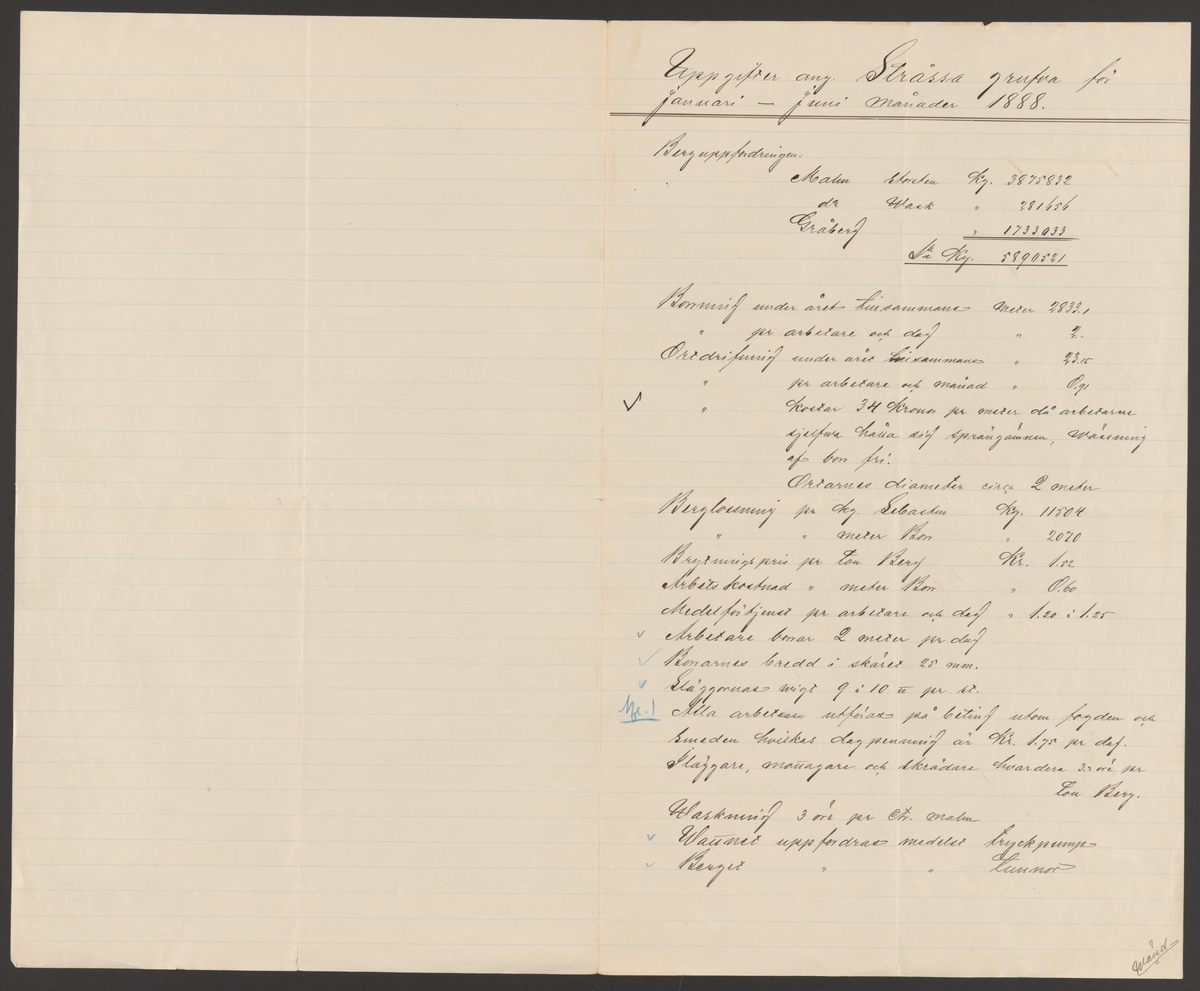 Uppgifter ang. Stråssa grufva för
Januari — Juni månader 1888.
Berguppfordringen:
Malm Storsten Kg. 3875832
do Wask " 281656
Gråberg " 1733033
Sa Kg. 5890521
Borrning under året tillsammans meter 2833.1
" pr arbetare och dag " 2.
Ortdrifning under året tillsammans " 23.15
" pr arbetare och månad " 0.91
" kostar 34 Kronor pr meter då arbetarne
sjelfva hålla sig sprängämnen, wässning
af borr fri.
Ortarnes diameter circa 2 meter
Berglossning pr Kg Sebastin Kg. 11504
" " meter Borr " 2070
Brytningspris pr ton Berg Kr. 1.52
Arbetskostnad " meter Borr " 0.60
Medelförtjenst pr arbetare och dag " 1.20 à 1.25
Arbetare borrar 2 meter pr dag
Borrarnes bredd i skäret 25 mm.
Släggornas vigt 9 à 10 ℔ pr st.
Alla arbeten utföras på beting utom fogden och
smeden hvilkas dagpenning är Kr. 1.75 pr dag.
Släggare, mottagare och skrädare hvardera 3.5 öre pr
ton Berg.
Waskning 3 öre pr Ctr. malm
Wattnet uppfordras medelst tryckpump
Berget " " tunnor